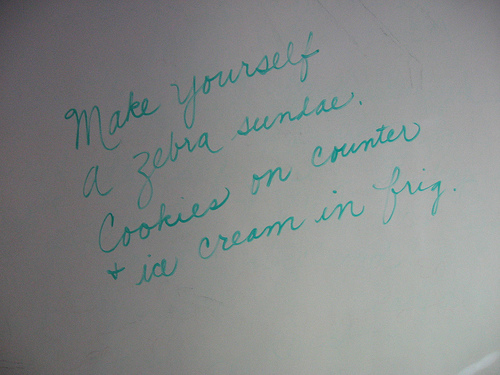 Make yourself
a zebra sundae.
Cookies on counter
+ ice cream in frig.